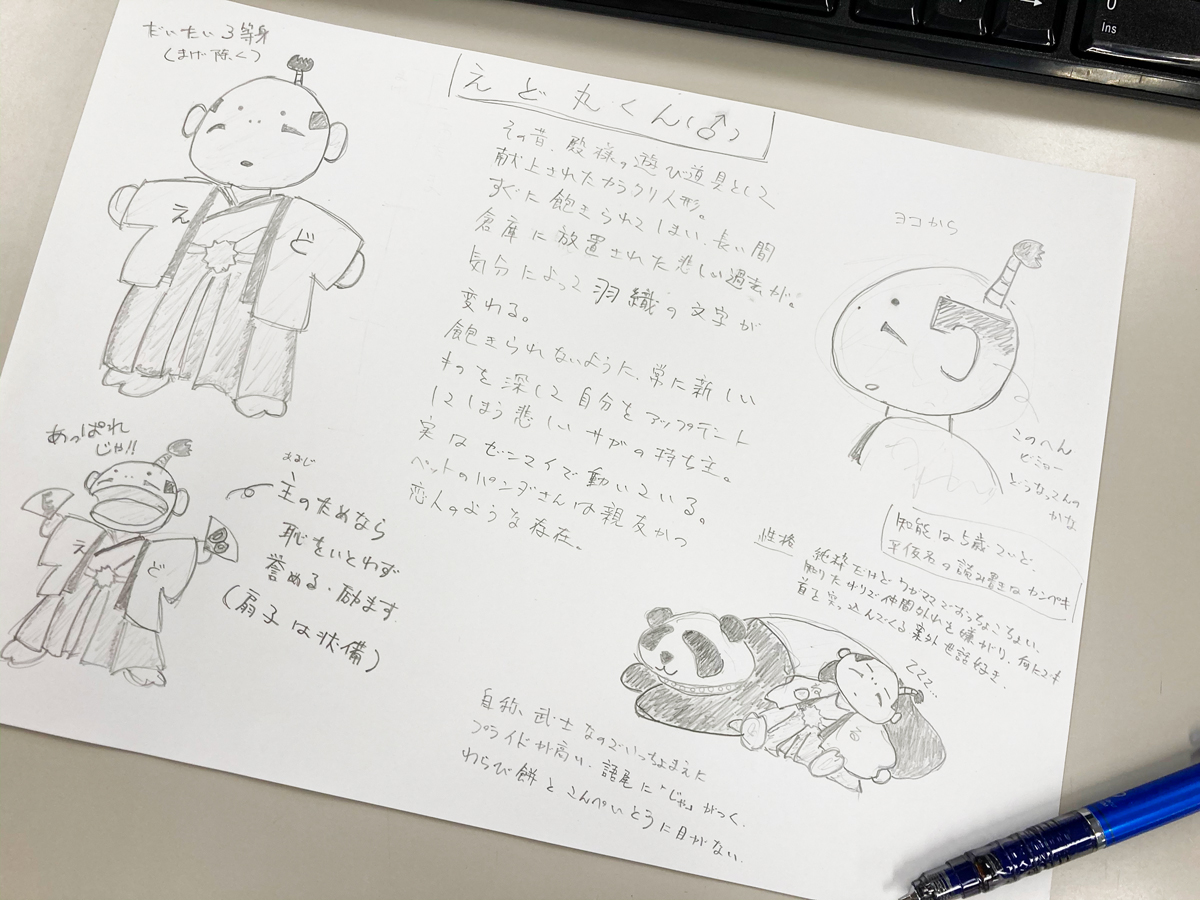 だいたい3等身
(まげ除く)
えど丸くん(♂)
その昔、殿様の遊び道具として
献上されたカラクリ人形。
すぐに飽きられてしまい、長い間
倉庫に放置された悲しい過去が。
気分によって羽織の文字が
変わる。
飽きられないように、常に新しい
ネタを探して自分をアップデート
してしまう悲しいサガの持ち主。
実はゼンマイで動いている。
ペットのパンダさんは親友かつ
恋人のような存在。
え ど
ヨコから
このへん
ビミョー
どうなってんの
かな
あっぱれ
じゃ!!
え ど
あるじ
主のためなら
恥をいとわず
誉める・励ます
(扇子は常備)
知能は5歳ていど
平仮名の読み書きはカンペキ
性格 純粋だけどワガママでおっちょこちょい。
知りたがりで仲間外れを嫌がり、何にでも
首を突っ込んでくる案外世話好き。
ててて…
自称、武士なのでいっちょまえに
プライドが高い。語尾に「じゃ」がつく。
わらび餅とこんぺいとうに目がない。
Ins